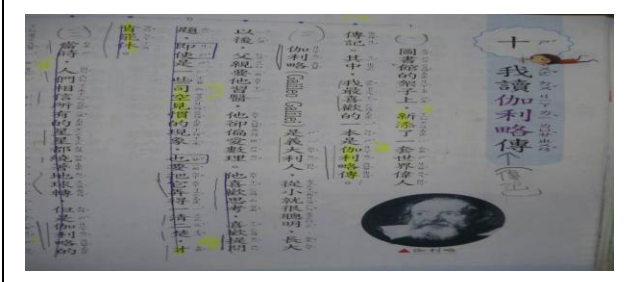 十
我讀伽利略傳
(傳記)
(一)
圖書館的架子上,新添了一套世界偉人
傳記。其中,我最喜歡的一本是伽利略傳。
(二)
伽利略(Galileo Galilei)是義大利人,從小就很聰明,長大
以後,父親要他習醫,他卻偏愛數理。他喜歡思考,喜歡提問
題,即使是一些司空見慣的現象,也要把它弄得一清二楚,才
肯罷休。
(三)
當時,人們相信所有的星星都繞著地球轉,但是伽利略的
▲伽利略